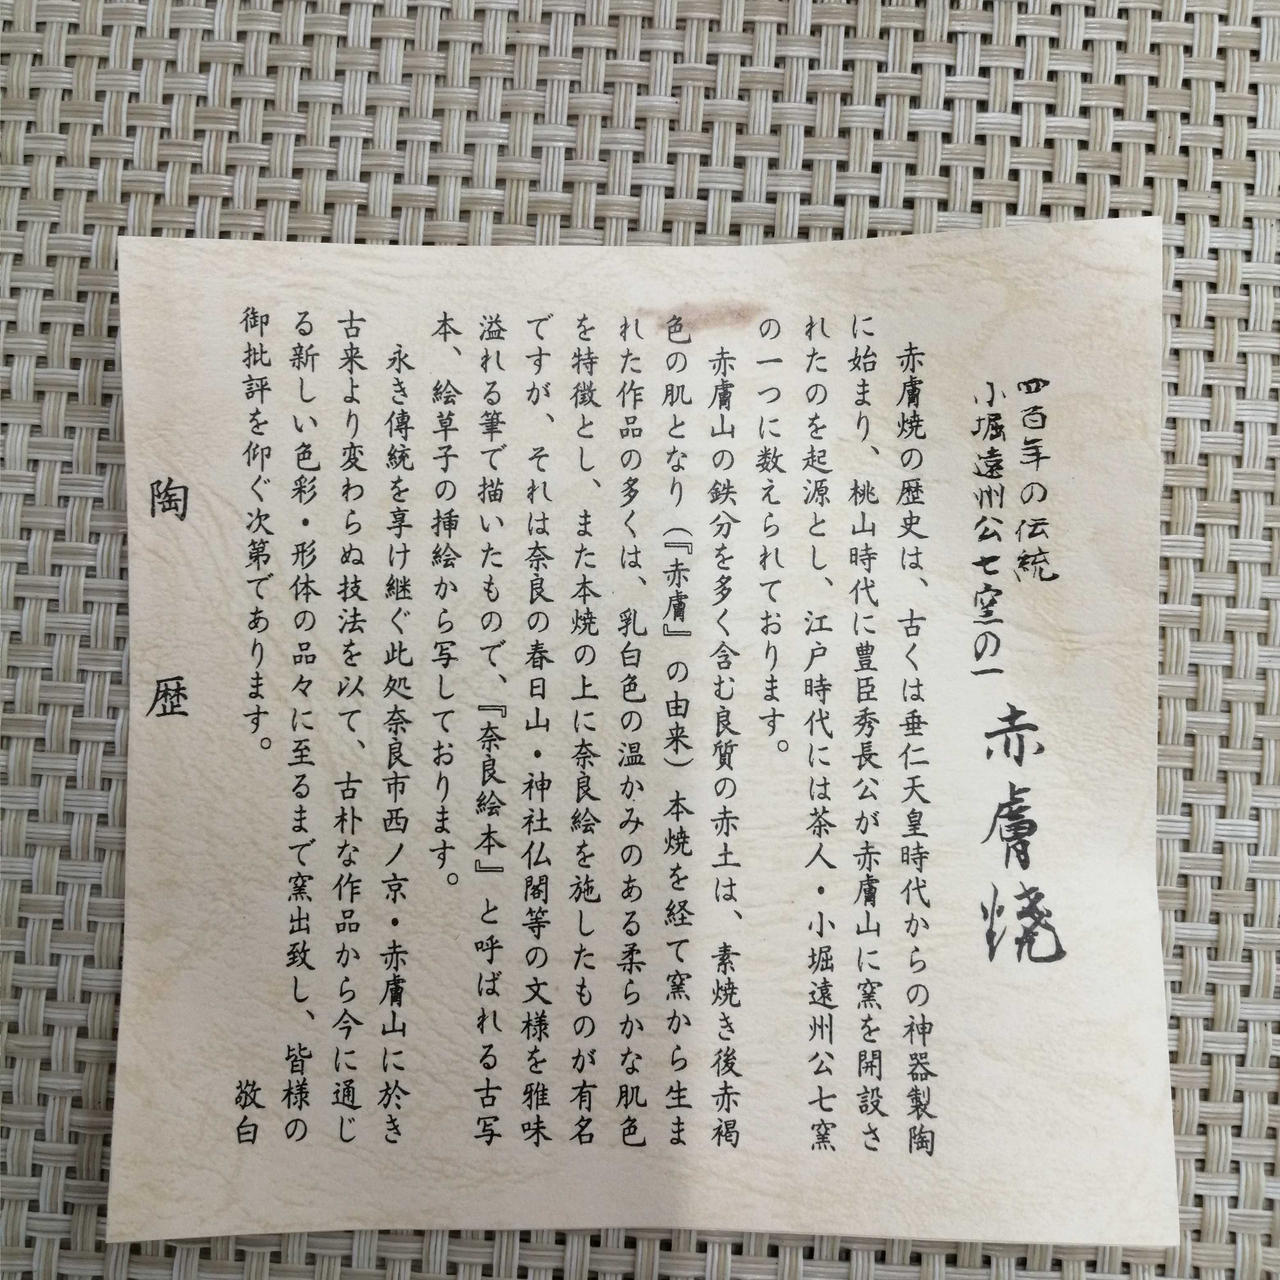 四百年の伝統
小堀遠州公七窯の一
赤膚焼
赤膚焼の歴史は、古くは垂仁天皇時代からの神器製陶
に始まり、桃山時代に豊臣秀長公が赤膚山に窯を開設さ
れたのを起源とし、江戸時代には茶人・小堀遠州公七窯
の一つに数えられております。
赤膚山の鉄分を多く含む良質の赤土は、素焼き後赤褐
色の肌となり（『赤膚』の由来）本焼を経て窯から生ま
れた作品の多くは、乳白色の温かみのある柔らかな肌色
を特徴とし、また本焼の上に奈良絵を施したものが有名
ですが、それは奈良の春日山・神社仏閣等の文様を雅味
溢れる筆で描いたもので、『奈良絵本』と呼ばれる古写
本、絵草子の挿絵から写しております。
永き傳統を享け継ぐ此処奈良市西ノ京・赤膚山に於き
古来より変わらぬ技法を以て、古朴な作品から今に通じ
る新しい色彩・形体の品々に至るまで窯出致し、皆様の
御批評を仰ぐ次第であります。　敬白
陶歴